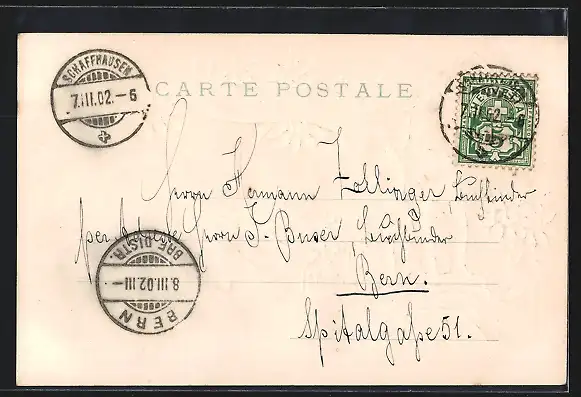 SCHAFFHAUSEN
7.III.02.–6
CARTE POSTALE
Herrn Hermann Zollinger, Buchbinder
per Adresse Herrn J. Buser, Buchbinder
Bern.
Spitalgaße 51.
BRF. DISTR.
8.III.02.III–
BERN